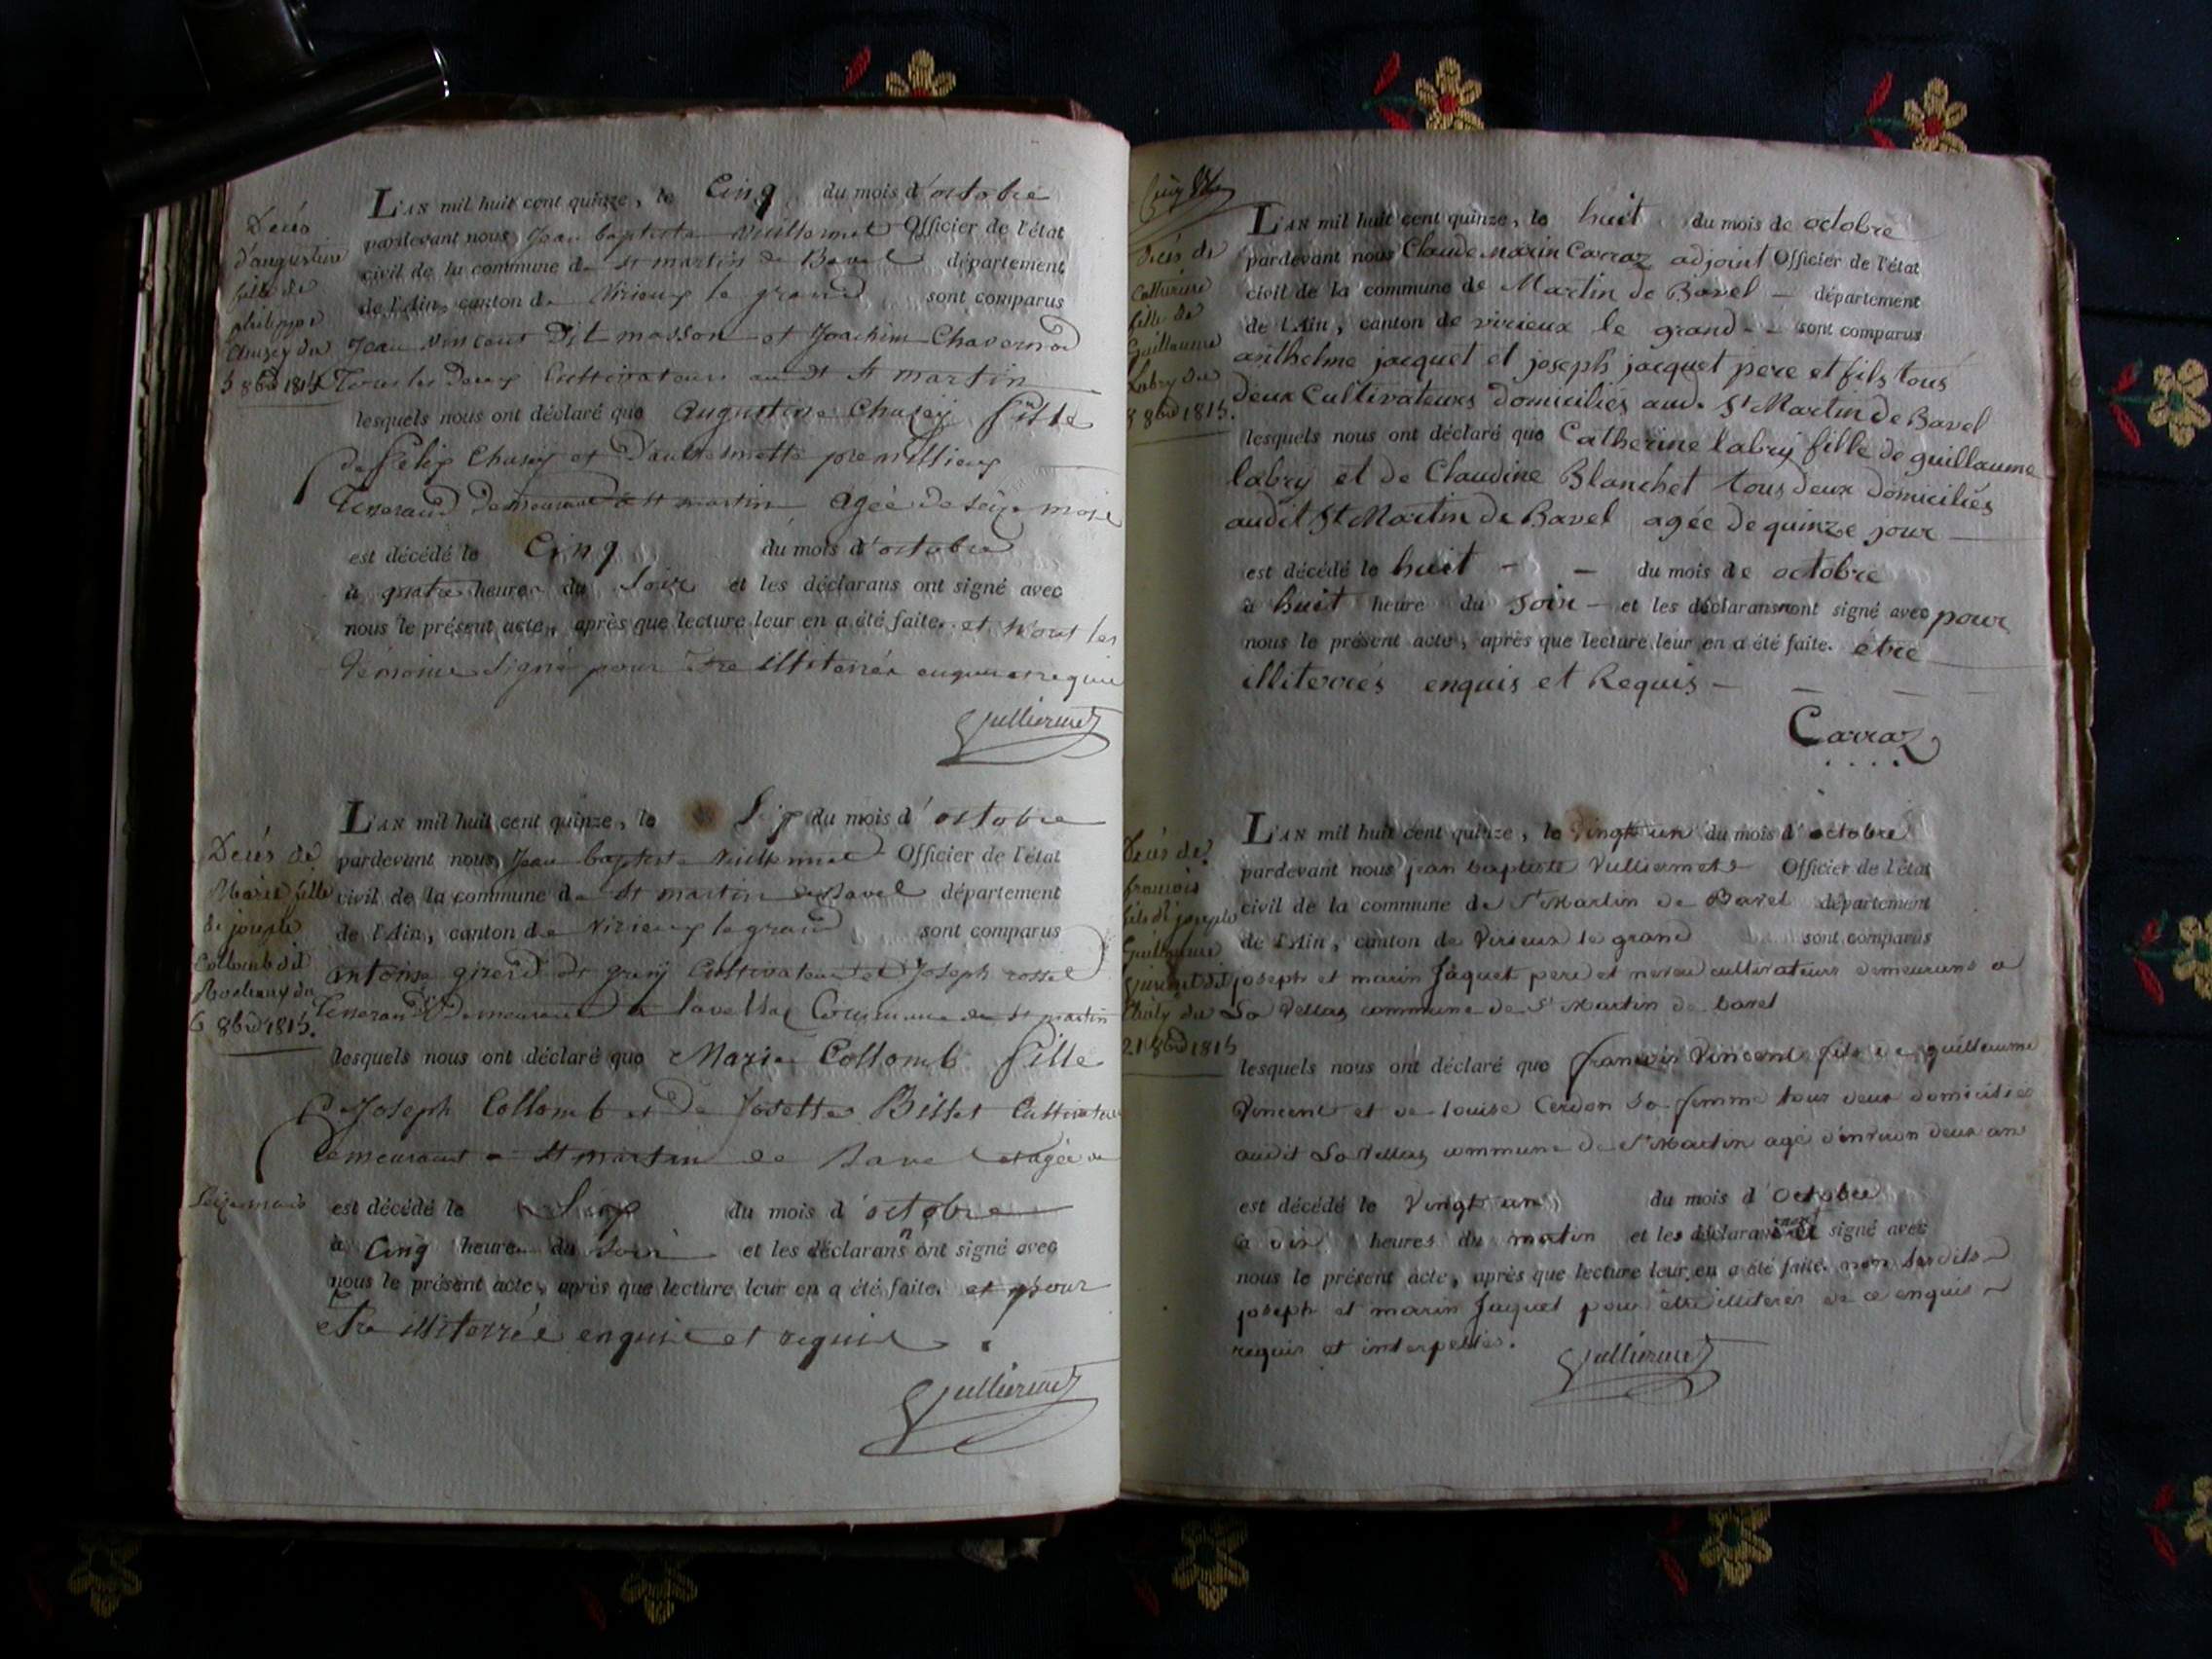 Décès
d'augustine
fille de
philippe
Chusey du
5 8bre 1815
L'AN mil huit cent quinze, le Cinq du mois d'octobre
pardevant nous Jean baptiste Vulliermet Officier de l'état
civil de la commune de St martin de Bavel département
de l'Ain, canton de Virieux le grand sont comparus
Jean Vincent Dit masson et Joachim Chavernod
Tous les deux Cultivateurs audt St martin
lesquels nous ont déclaré que augustine Chusey fille
de felix Chusey et D'anthelmette premillieux
Tisserand demeurant a St martin agée de seize mois
est décédé le Cinq du mois d'octobre
à quatre heures du Soir et les déclarans ont signé avec
nous le présent acte, après que lecture leur en a été faite. et n'ont les
témoins Signé pour être illiterrés enquis requis
Vulliermet
Décès de
Marie fille
de joseph
Collomb dit
du
6 8bre 1815.
L'AN mil huit cent quinze, le Six du mois d'octobre
pardevant nous Jean baptiste Vulliermet Officier de l'état
civil de la commune de St martin de Bavel département
de l'Ain, canton de Virieux le grand sont comparus
antoine girerd dt Cultivateur et Joseph rossel
Tisserand Demeurant a lavellaz Commune de St martin
lesquels nous ont déclaré que Marie Collomb fille
de Joseph Collomb et De Josette Billet Cultivateurs
Demeurant a St martin de Bavel et agée de
Seize mois est décédé le Six du mois d'octobre
à Cinq heures du Soir et les déclarans n'ont signé avec
nous le présent acte, après que lecture leur en a été faite. et pour
etre illiterrés enquis et requis.
Vulliermet
Décès de
Catherine
fille de
Guillaume
Labry du
8 8bre 1815.
L'AN mil huit cent quinze, le huit du mois de octobre
pardevant nous Claude Marin Carraz adjoint Officier de l'état
civil de la commune de Martin de Bavel – département
de l'Ain, canton de virieux le grand - - sont comparus
anthelme jacquet et joseph jacquet pere et fils tous
deux Cultivateurs domiciliés aud. St Martin de Bavel
lesquels nous ont déclaré que Catherine labry fille de guillaume
labry et de Claudine Blanchet tous deux domiciliés
audit St Martin de Bavel agée de quinze jour
est décédé le huit - - du mois de octobre
à huit heure du soir - et les déclarans nont signé avec pour
nous le présent acte, après que lecture leur en a été faite. être
illiterrés enquis et Requis - - -
Carraz
Décès de
francois
fils de joseph
Guillaume
Vincent dit
du
21 8bre 1815
L'AN mil huit cent quinze, le vingt un du mois d'octobre
pardevant nous jean baptiste Vulliermet Officier de l'état
civil de la commune de St Martin de Bavel département
de l'Ain, canton de Virieux le grand sont comparus
joseph et marin Jaquet pere et neveu cultivateurs demeurans a
La Vellaz commune de St Martin de bavel
lesquels nous ont déclaré que francois Vincent fils de guillaume
Vincent et de louise Cerdon sa femme tous deux domiciliés
audit La Vellaz commune de St Martin agé d'environ deux ans
est décédé le Vingt un du mois d'octobre
à dix heures du matin et les déclarans ont signé avec
nous le présent acte, après que lecture leur en a été faite. non lesdits
joseph et marin Jaquet pour être illiterés de ce enquis
requis et interpellés.
Vulliermet